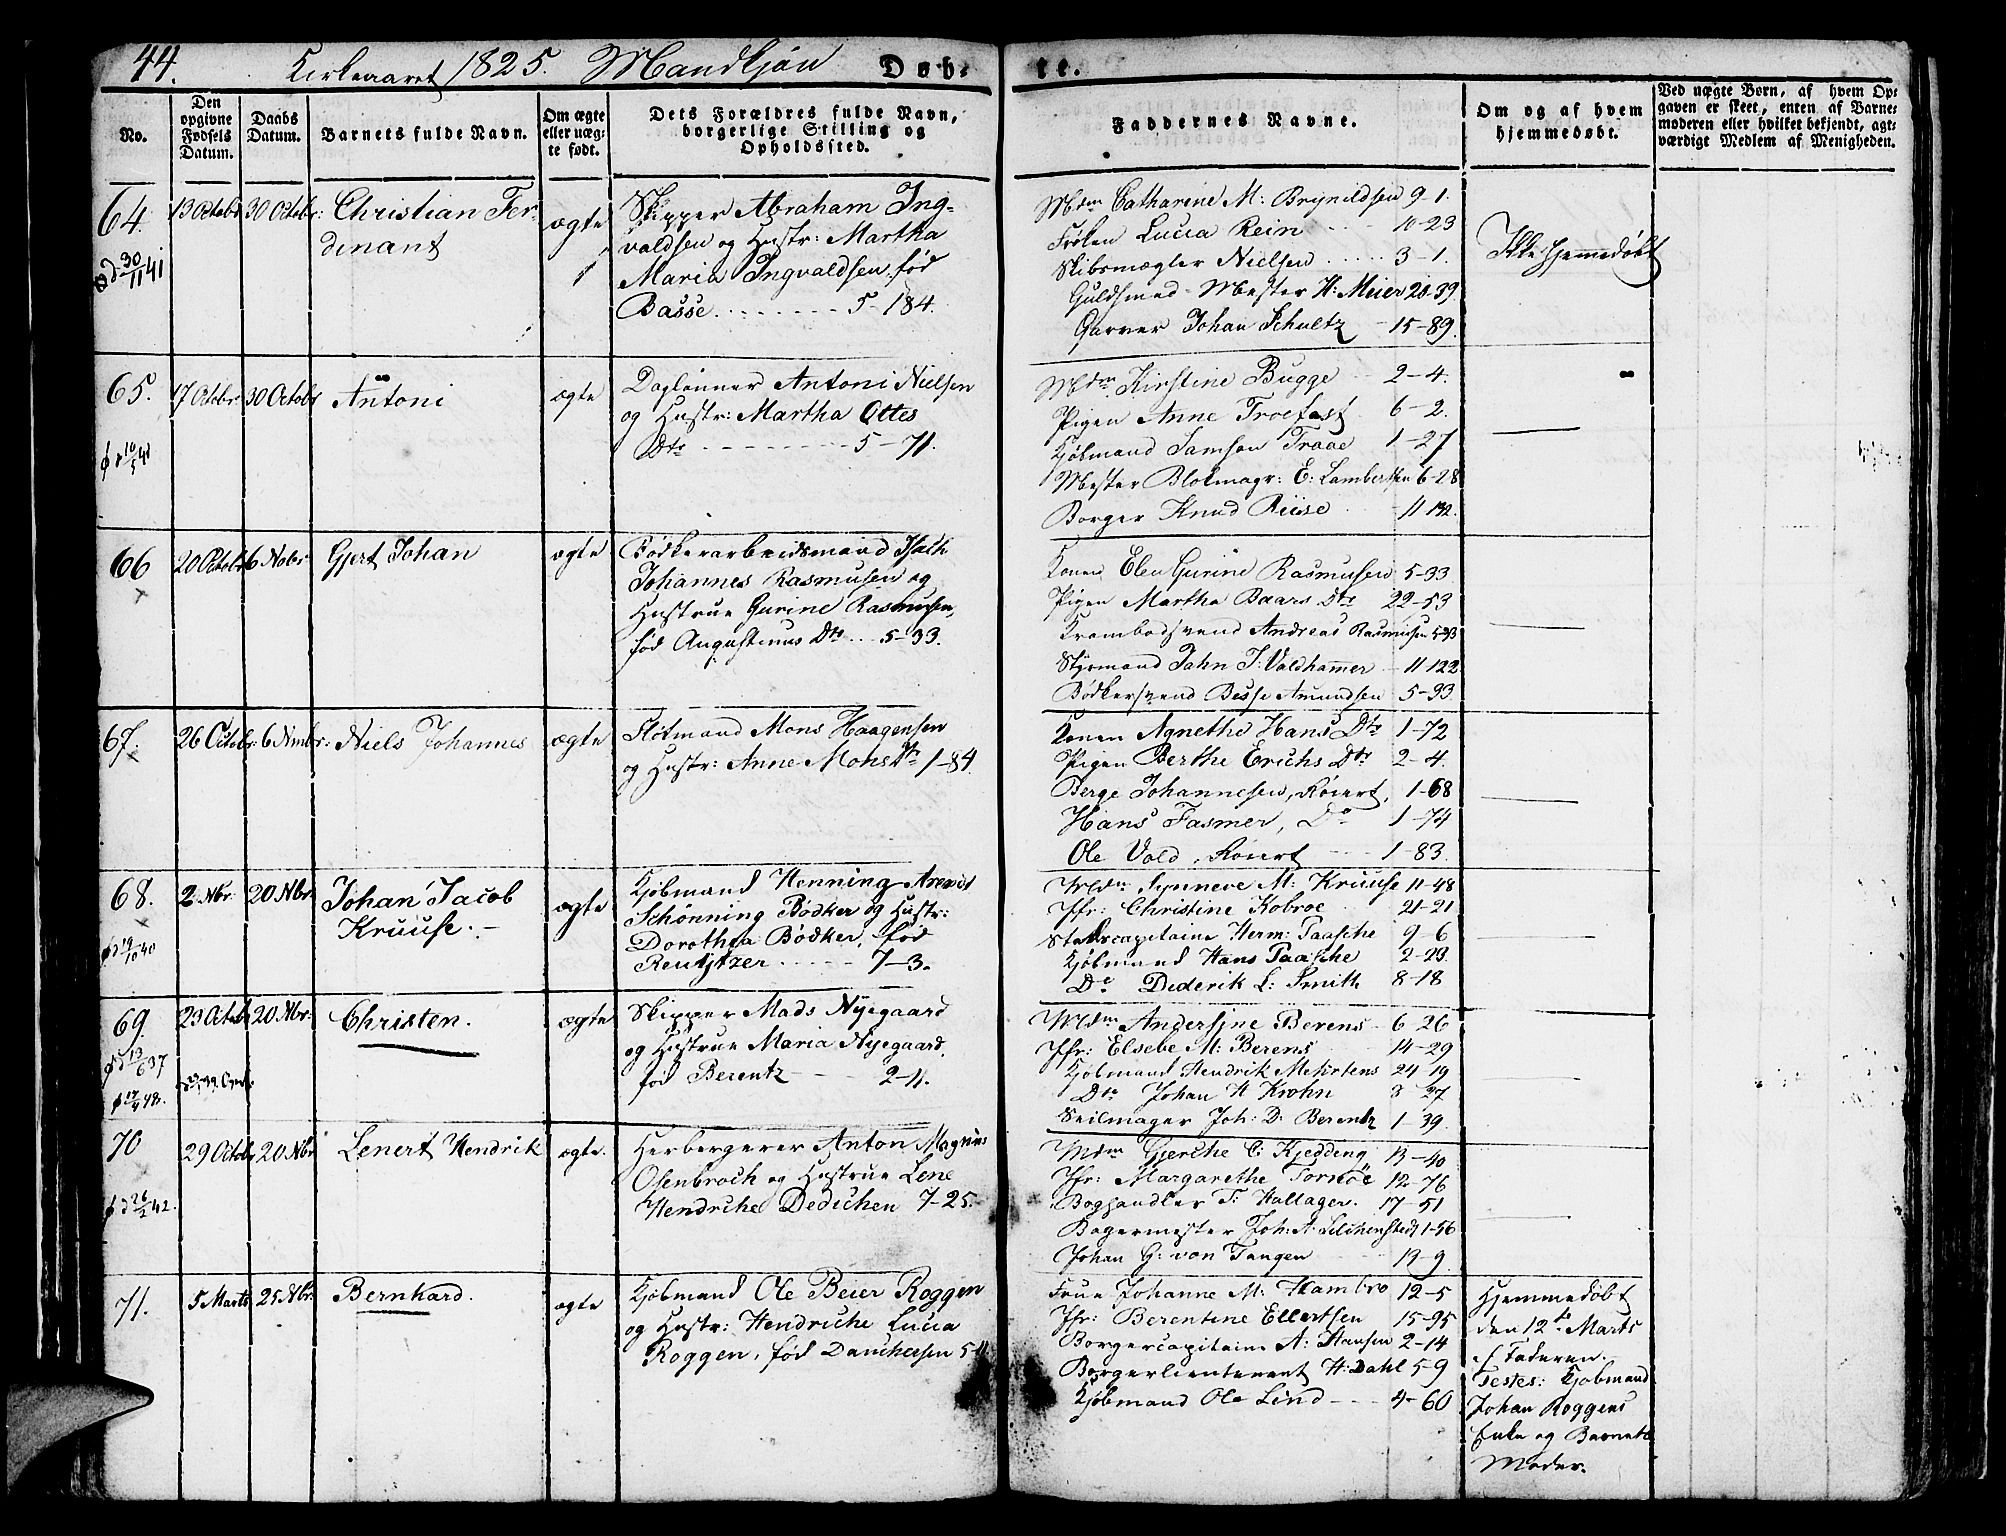 44. Kirkeaaret 1825. Mandkjøn Døb-
te.
No.
Den opgivne Fødsels Datum.
Daabs Datum.
Barnets fulde Navn.
Om ægte eller uæg-te født.
Dets Forældres fulde Navn, borgerlige Stilling og Opholdssted.
Faddernes Navne.
Om og af hvem hjemmedøbt.
Ved uægte Børn, af hvem Op-
gaven er skeet, enten af Barne-
moderen eller hvilket bekjendt, agt-
værdigt Medlem af Menigheden.
64. 13 Octobr 30 Octobr: Christian Fer-
dinant
ægte
Skipper Abraham Ing-
valdsen og Hustr: Martha
Maria Ingvaldsen, fød
Basse 5-184.
30/11 41
Mdm Catharine M: Brynildsen 9-1.
Frøken Lucia Rein 10-23
Skibsmægler Nielsen 3-1.
Guldsmed-Mester H: Meier 20-39
Garver Johan Schultz 15-89.
Ikke hjemmedøbt
65. 17 Octobr 30 Octobr Antoni
ægte
Daglønner Antoni Nielsen
og Hustr: Martha Ottes
Dtr 5-71.
Mdm Kirstine Bugge 2-4.
Pigen Anne Troefast 6-2.
Kjøbmand Samson Traae 1-27
Mester Blokmagr: E: Lambertsen 6-28
Borger Knud Riise 11 132.
66 20 Octobr 6 Nobr Gjert Johan
ægte
Bødkerarbeidsmand Isach
Johannes Rasmusen og
Hustrue Gurine Rasmusen,
fød Augustinus Dtr 5-33.
Konen Elen Gurine Rasmusen 5-33
Pigen Martha Baars Dtr 22-53
Krambodsvend Andreas Rasmusen 5-33
Styrmand Jahn J: Valdhamer 11 122
Bødkersvend Besse Amundsen 5-33.
67. 26 Octobr: 6 Nvmbr: Niels Johannes
ægte
Fløtmand Mons Haagensen
og Hustr: Anne Mons Dtr 1-84.
Konen Agnethe Hans Dtr 1-72
Pigen Berthe Erichs Dtr 2-4.
Berge Johannesen, Røiert, 1-68
Hans Fasmer, Do 1-74
Ole Vold, Røiert 1-83.
68. 2 Nbr 20 Nbr Johan Jacob
Kruuse.
ægte
Kjøbmand Henning Arendt
Schønning Bødker og Hustr:
Dorothea Bødker, fød
Reutzer 7-3.
19/10 40
Mdm Synneve M: Kruuse 11-48
Jfr: Christine Kobroe 21-21
Stabscapitaine Herm: Paasche 9-6
Kjøbmand Hans Paasche 2-23.
Do Diderik L: Smith 8-18
69. 23 Octobr 20 Nbr: Christen.
ægte
Skipper Mads Nyegaard
og Hustrue Maria Nyegaard,
fød Berentz 2-11.
Mdm Andersine Berens 6-26
Jfr: Elsebe M: Berens 14-29
Kjøbmand Hendrik Mehrtens 24-19
Dto Johan H Krohn 3 27
Seilmager Joh: D: Berentz 1-39.
70 29 Octobr 20 Nbr Lenert Hendrik
ægte.
Herbergerer Anton Magnus
Osenbroch og Hustrue Lene
Hendriche Dedichen 7-25.
26/2 42.
Mdm Gjerche C: Kjedding 13-40
Jfr: Margarethe Tornöe 12-76
Boghandler T: Hallager. 17-51
Bagermester Joh: A: Lichenstedt 1-56
Johan G: von Tangen 13-9
71. 5 Marts 25 Nbr: Bernhard.
ægte
Kjøbmand Ole Beier Roggen
og Hustr: Hendriche Lucia
Roggen, fød Danchersen 5-11
Frue Johanne M: Hambro 12-5
Jfr: Berentine Ellertsen 15-95
Borgercapitaine A: Hansen 2-14
Borgerlieutenant H: Dahl 5-9
Kjøbmand Ole Lind 4-60
Hjemmedøbt
den 12te Marts
af Faderen.
Testes: Kjøbmand
Johan Roggens
Enke og Barnets
Moder.